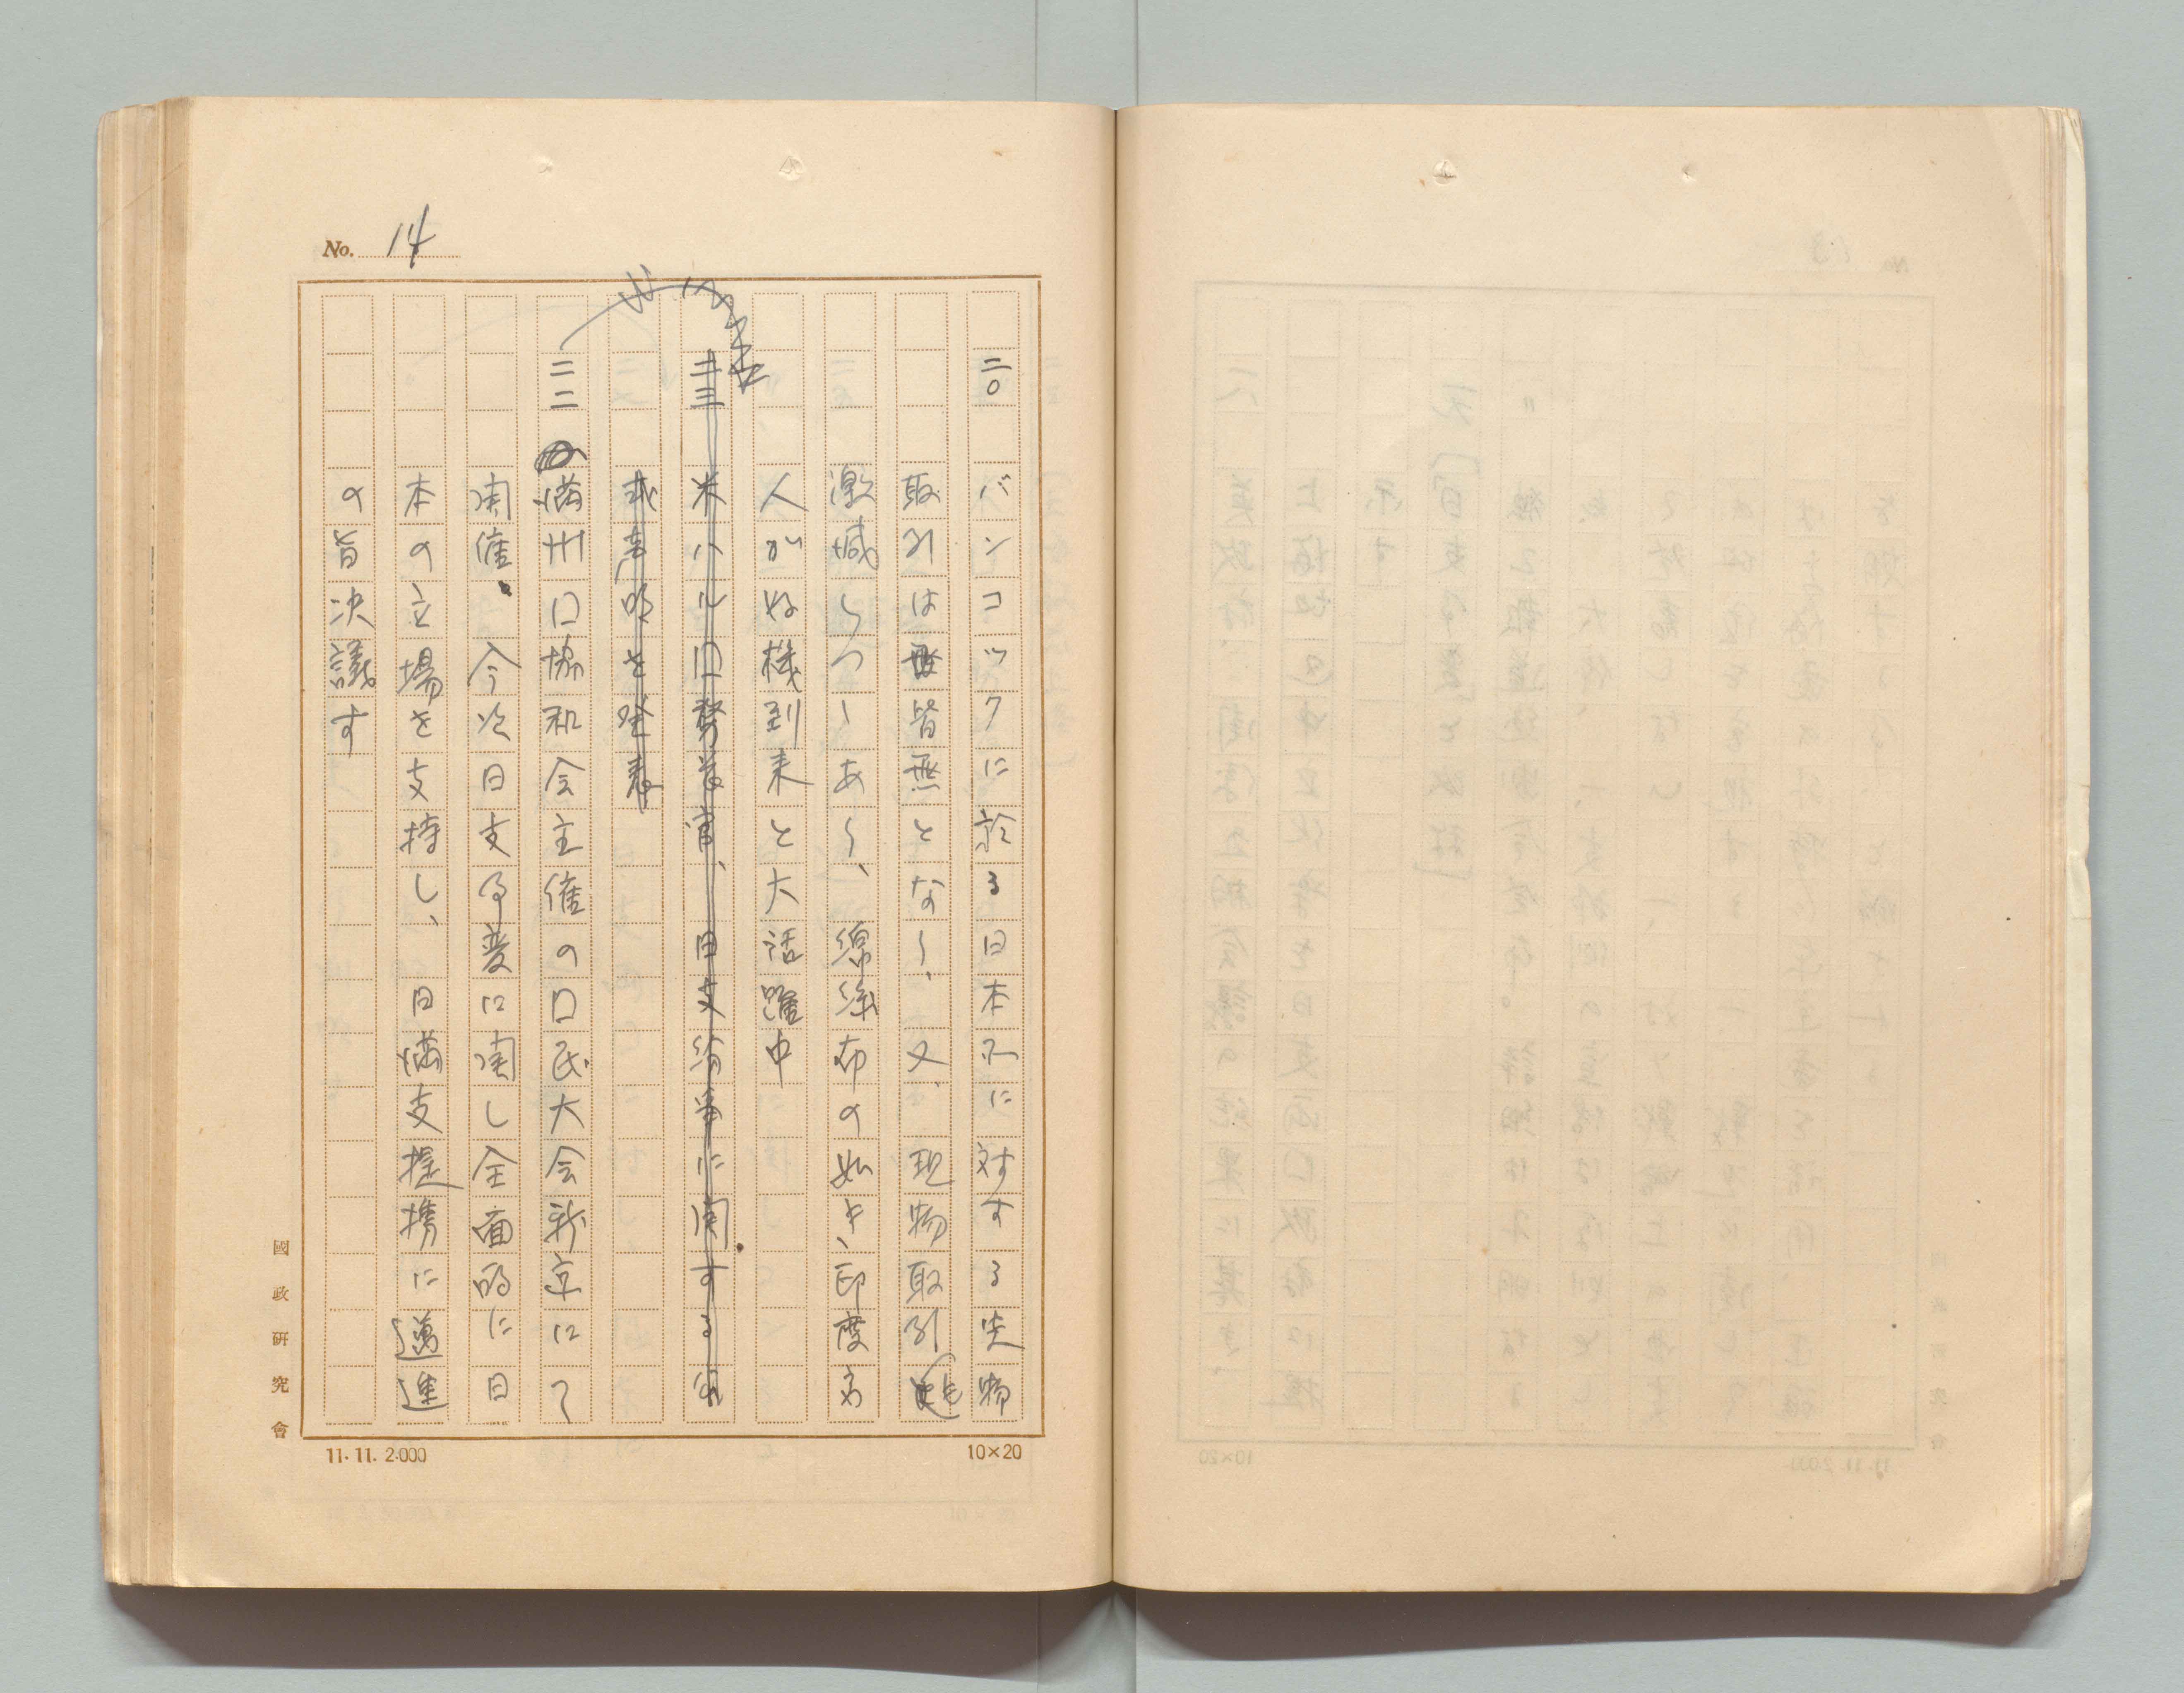 No. 14
二〇 バンコックに於る日本品に対する先物
取引は皆無となり、又、現物取引も
激減しつゝあり、綿糸布の如き、印度商
人がぬ機到来と大活躍中
二三 米ハル国務長官、日支紛争に関する
声明を発表
二二 満州国協和会主催の国民大会新京にて
開催、今次日支事変に関し全面的に日
本の立場を支持し、日満支提携に邁進
の旨決議す
國政研究會
11. 11. 2.000
10×20